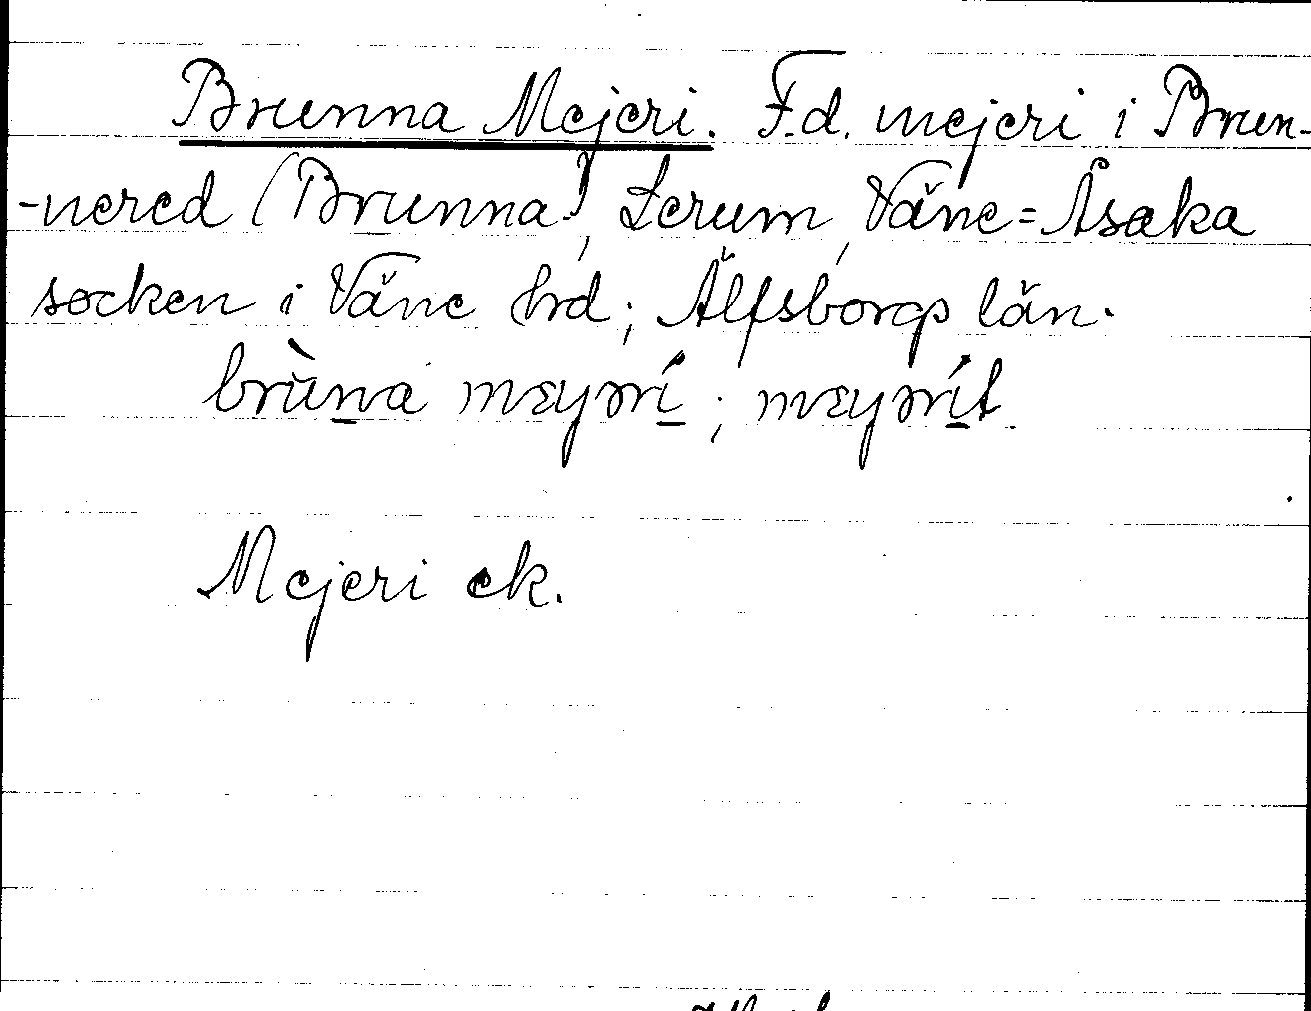 Brunna Mejeri. F.d. mejeri i Brun-
-nered (Brunna), Lerum, Väne=Åsaka
socken i Väne hrd; Älfsborgs län.
brùna mɛyərí; mɛyərít
Mejeri ek.